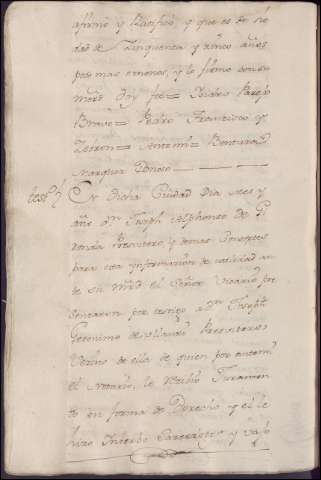 afirmo y Ratifico, y que es de he
dad de Zinquenta y zinco años
poco mas o menos, y lo firmo con su
mrd Doy fee= Pareja
Bravo= Pedro Francisco y
Antemi= Bentura
Marquez Donoso
testº En dicha Ciudad Dia, Mes y
año Dn Joseph Alphonso de
Presvitero, y demas Consortes
para esta informazion de calidad an
te su Mrd el Señor Vicario pre
sentaron por testigo a Dn Joseph
Geronimo de Presvitero
Vezino de ella de quien por antemi
el Notario, le Recivio Juramen
to en forma de Derecho y el le
hizo Interbo Sacerdotis y vajo